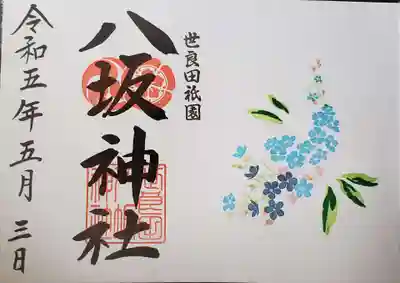 世良田祇園
八坂神社
令和五年五月三日